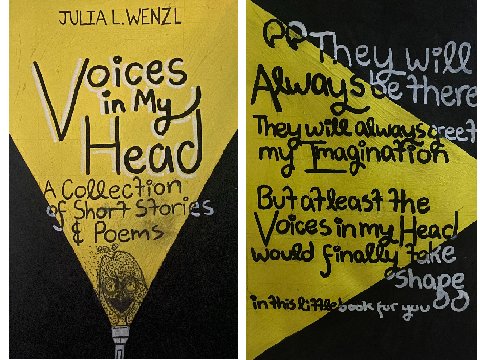 JULIA L. WENZL
Voices
in My
Head
A Collection
of Short Stories
& Poems
They will
Always be there
They will always greet
my Imagination
But at least the
Voices in my Head
would finally take
shape
in this little book for you